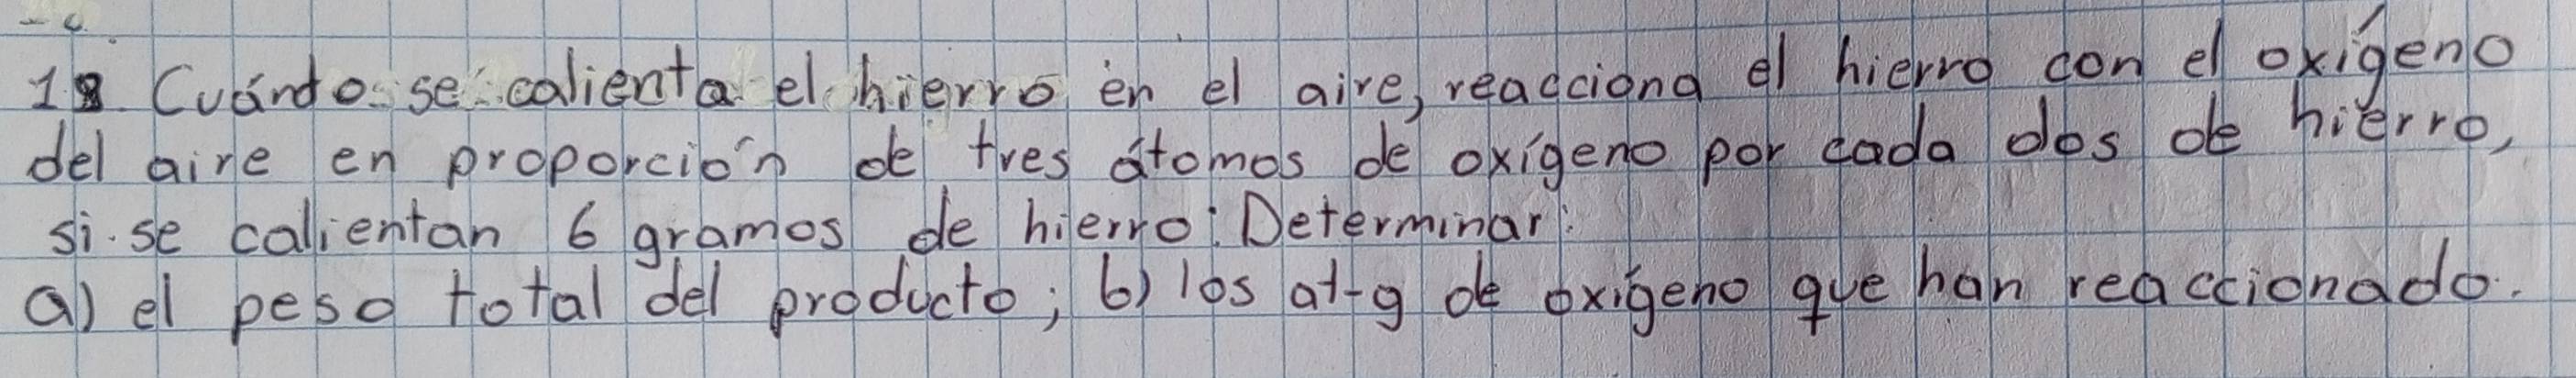 18. Cuándo se calienta el hierro en el aire, reacciona el hierro con el oxígeno
del aire en proporción de tres átomos de oxígeno por cada dos de hierro,
si se calientan 6 gramos de hierro: Determinar:
a) el peso total del producto; b) los at-g de oxígeno que han reaccionado.